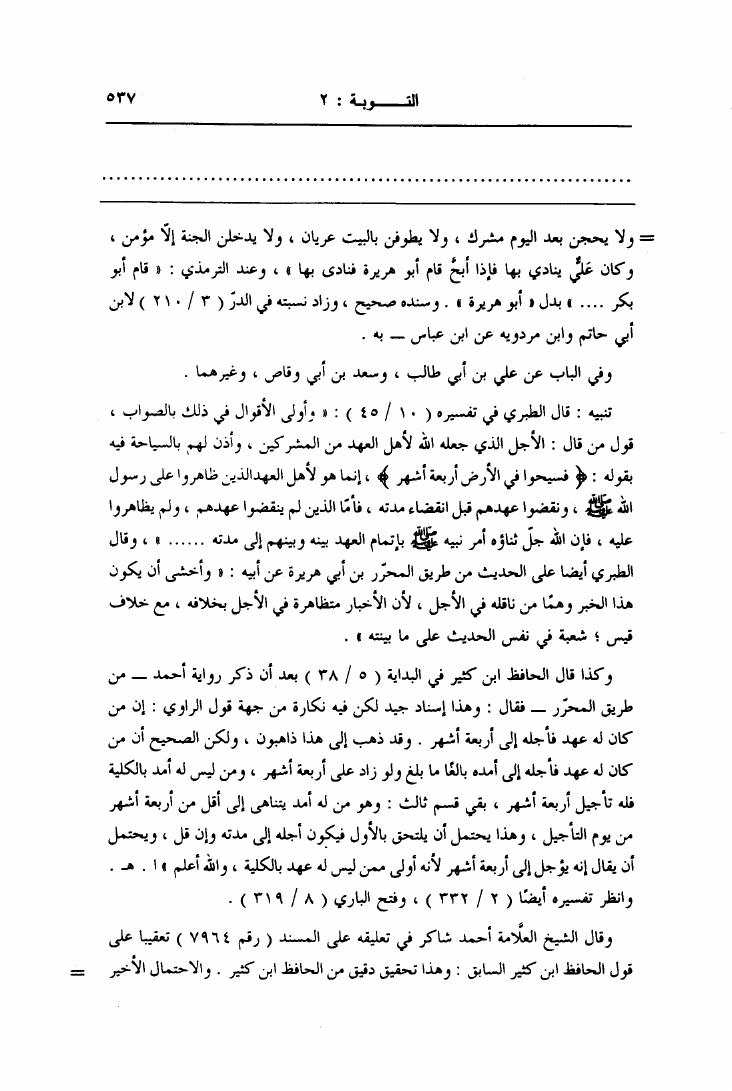 التـــــوبة : ٢ ٥٣٧
= ولا يحجن بعد اليوم مشرك ، ولا يطوفن بالبيت عريان ، ولا يدخلن الجنة إلّا مؤمن ،
وكان عَليٌّ ينادي بها فإذا أبحَّ قام أبو هريرة فنادى بها » ، وعند الترمذي : « قام أبو
بكر .... » بدل « أبو هريرة » . وسنده صحيح ، وزاد نسبته في الدرّ ( ٣ / ٢١٠ ) لابن
أبي حاتم وابن مردويه عن ابن عباس — به .
وفي الباب عن علي بن أبي طالب ، وسعد بن أبي وقاص ، وغيرهما .
تنبيه : قال الطبري في تفسيره ( ١٠ / ٤٥ ) : « وأولى الأقوال في ذلك بالصواب ،
قول من قال : الأجل الذي جعله الله لأهل العهد من المشركين ، وأذن لهم بالسياحة فيه
بقوله : ﴿ فسيحوا في الأرض أربعة أشهر ﴾ ، إنما هو لأهل العهدالذين ظاهروا على رسول
الله ﷺ ، ونقضوا عهدهم قبل انقضاء مدته ، فأمّا الذين لم ينقضوا عهدهم ، ولم يظاهروا
عليه ، فإن الله جلّ ثناؤه أمر نبيه ﷺ بإتمام العهد بينه وبينهم إلى مدته ...... » ، وقال
الطبري أيضا على الحديث من طريق المحرّر بن أبي هريرة عن أبيه : « وأخشى أن يكون
هذا الخبر وهمًا من ناقله في الأجل ، لأن الأخبار متظاهرة في الأجل بخلافه ، مع خلاف
قيس ؛ شعبة في نفس الحديث على ما بينته » .
وكذا قال الحافظ ابن كثير في البداية ( ٥ / ٣٨ ) بعد أن ذكر رواية أحمد — من
طريق المحرّر — فقال : وهذا إسناد جيد لكن فيه نكارة من جهة قول الراوي : إن من
كان له عهد فأجله إلى أربعة أشهر . وقد ذهب إلى هذا ذاهبون ، ولكن الصحيح أن من
كان له عهد فأجله إلى أمده بالغًا ما بلغ ولو زاد على أربعة أشهر ، ومن ليس له أمد بالكلية
فله تأجيل أربعة أشهر ، بقي قسم ثالث : وهو من له أمد يتناهى إلى أقل من أربعة أشهر
من يوم التأجيل ، وهذا يحتمل أن يلتحق بالأول فيكون أجله إلى مدته وإن قل ، ويحتمل
أن يقال إنه يؤجل إلى أربعة أشهر لأنه أولى ممن ليس له عهد بالكلية ، والله أعلم » ا . هـ .
وانظر تفسيره أيضًا ( ٢ / ٣٣٢ ) ، وفتح الباري ( ٨ / ٣١٩ ) .
وقال الشيخ العلَّامة أحمد شاكر في تعليقه على المسند ( رقم ٧٩٦٤ ) تعقيبا على
قول الحافظ ابن كثير السابق : وهذا تحقيق دقيق من الحافظ ابن كثير . والاحتمال الأخير =